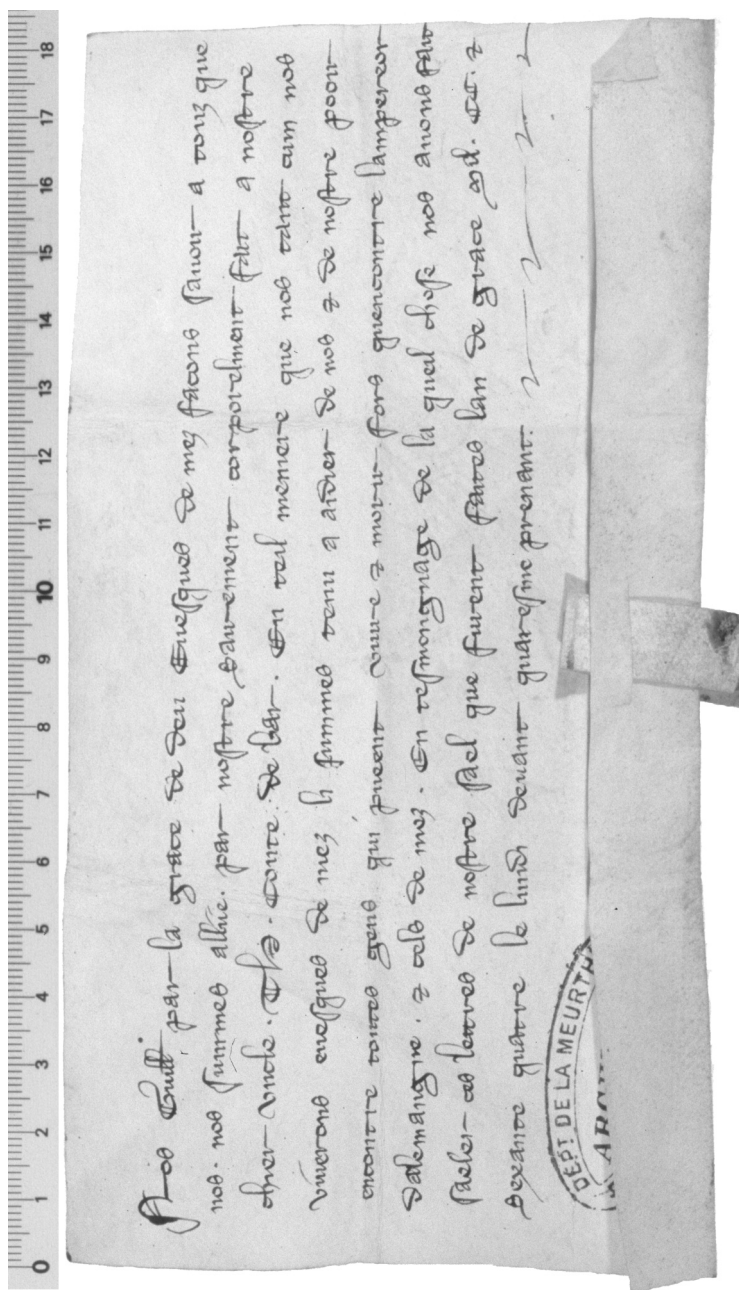 Nos Guill'. par la grace de deu Euesques de mez facons sauoir a touz que
nos. nos summes alliie. par nostre sairement corporelment fait a nostre
chier oncle. Th'. Conte. de bar. En teil meniere que nos tant cum nos
viuerons euesques de mez li summes tenu a aidier de nos 7 de nostre pooir
encontre toutes gens qui puecent viure 7 morir fors quencontre lampereor
dalemangne. 7 cels de mez. En tesmongnage de la queil chose nos auons fait
saeler ces lettres de nostre sael que furent faites lan de grace mil. CC. 7
sexante quatre le lundi deuant quaresme prenant.
DEPT DE LA MEURTHE
ARCH
0 1 2 3 4 5 6 7 8 9 10 11 12 13 14 15 16 17 18